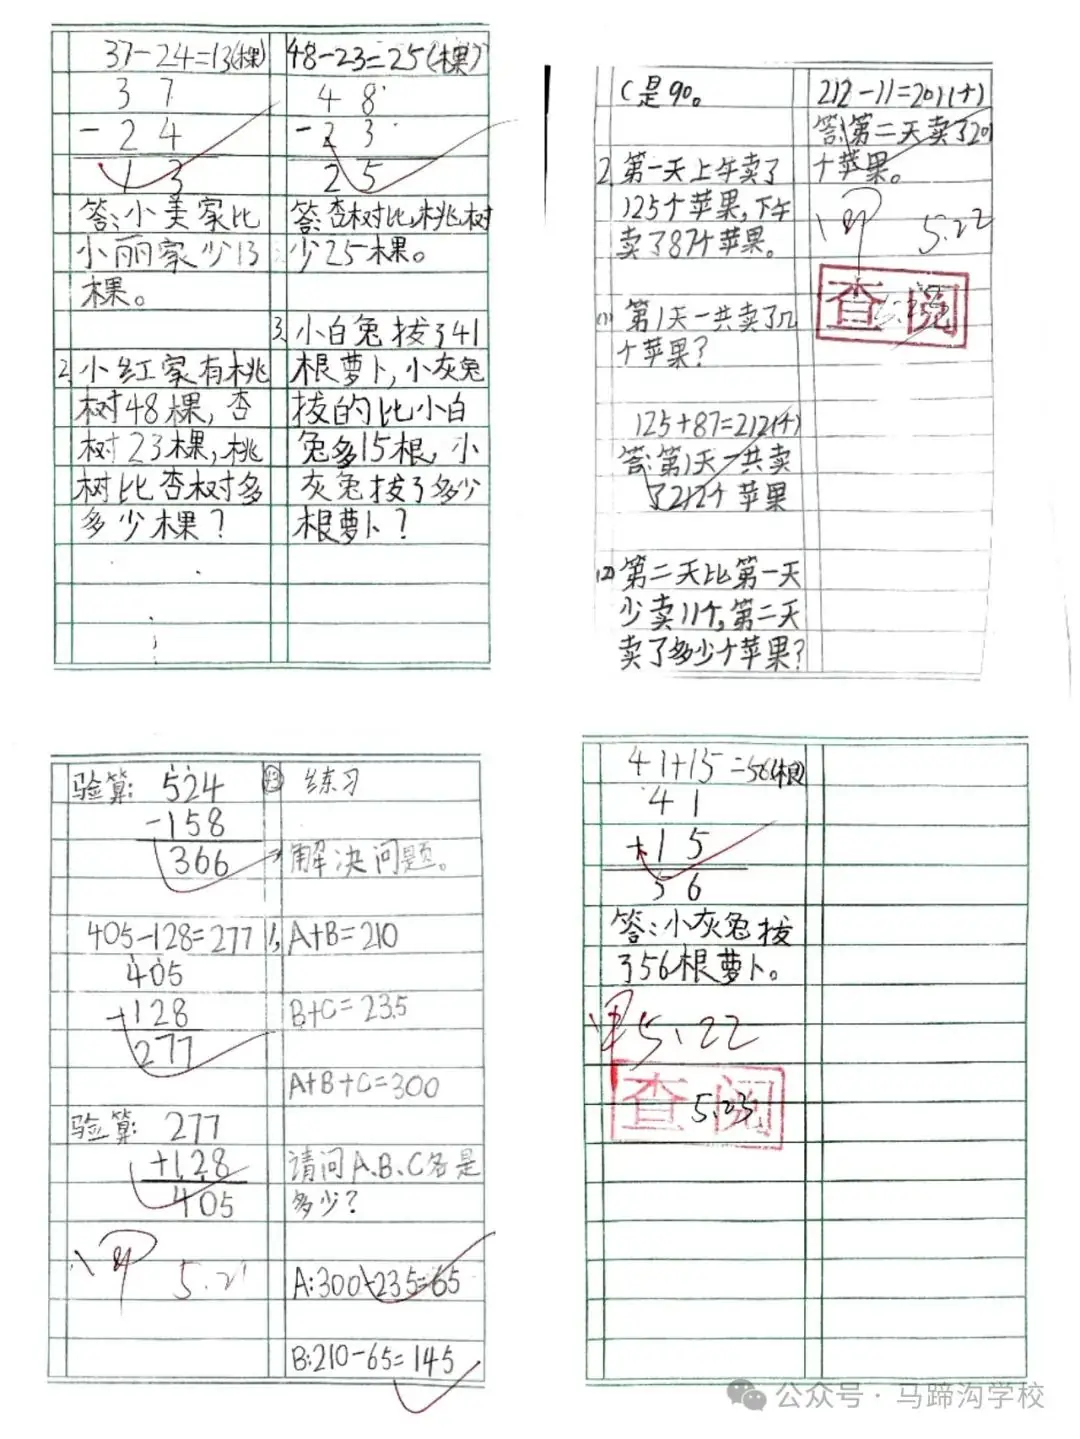 37-24=13(棵)
3 7
-2 4
1 3
答:小美家比
小丽家少13
棵。
2.小红家有桃
树48棵,杏
树23棵,桃
树比杏树多
多少棵?
48-23=25(棵)
4 8
-2 3
2 5
答:杏树比桃树
少25棵。
3.小白兔拔了41
根萝卜,小灰兔
拔的比小白
兔多15根,小
灰兔拔了多少
根萝卜?
C是90。
2.第一天上午卖了
125个苹果,下午
卖了87个苹果。
(1)第1天一共卖了几
个苹果?
125+87=212(个)
答:第1天一共卖
了212个苹果
(2)第二天比第一天
少卖11个,第二天
卖了多少个苹果?
212-11=201(个)
答:第二天卖了201
个苹果。
5.22
查阅
验算: 524
-158
366
405-128=277
405
-128
277
验算: 277
+128
405
5.21
练习
解决问题。
1. A+B=210
B+C=235
A+B+C=300
请问A、B、C各是
多少?
A:300-235=65
B:210-65=145
41+15=56(根)
4 1
+1 5
5 6
答:小灰兔拔
了56根萝卜。
5.22
查阅
5.23
公众号·马蹄沟学校